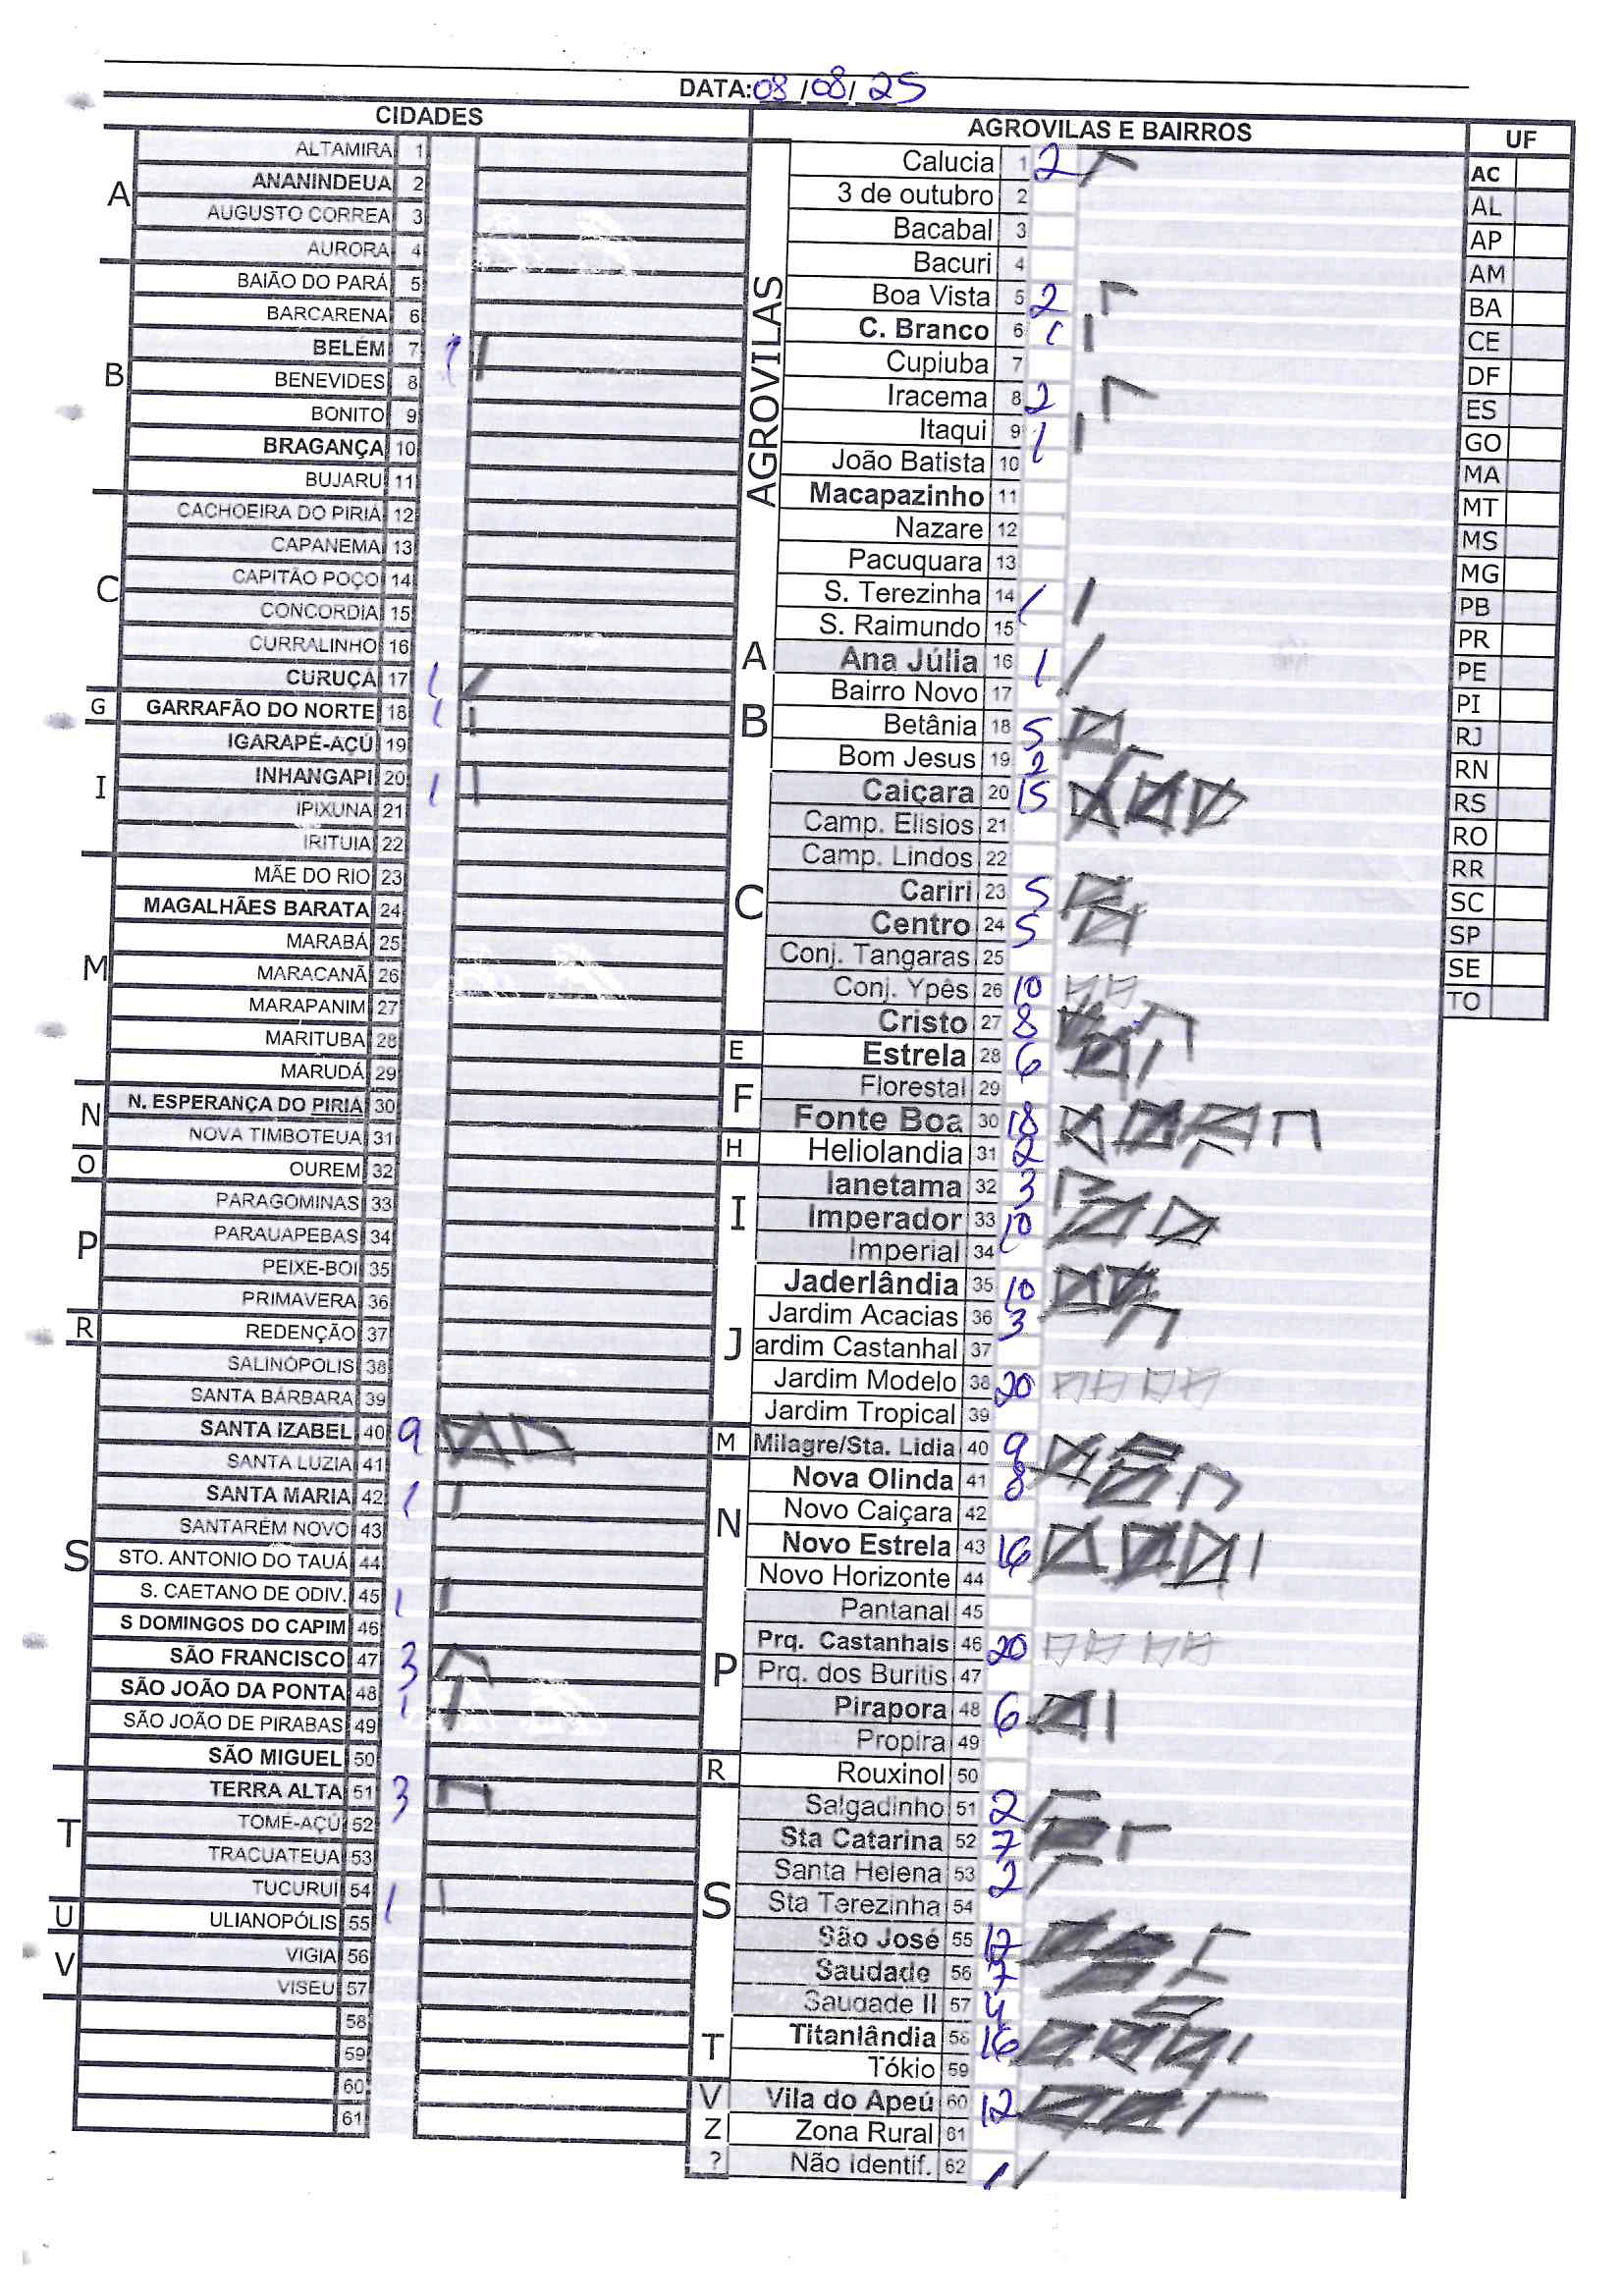 DATA: 08 / 08 / 25
CIDADES
A
ALTAMIRA 1
ANANINDEUA 2
AUGUSTO CORREA 3
AURORA 4
B
BAIÃO DO PARÁ 5
BARCARENA 6
BELÉM 7 1
BENEVIDES 8
BONITO 9
BRAGANÇA 10
BUJARU 11
C
CACHOEIRA DO PIRIÁ 12
CAPANEMA 13
CAPITÃO POÇO 14
CONCORDIA 15
CURRALINHO 16
CURUÇÁ 17 1
G
GARRAFÃO DO NORTE 18 1
I
IGARAPÉ-AÇÚ 19
INHANGAPI 20 1
IPIXUNA 21
IRITUIA 22
M
MÃE DO RIO 23
MAGALHÃES BARATA 24
MARABÁ 25
MARACANÃ 26
MARAPANIM 27
MARITUBA 28
MARUDÁ 29
N
N. ESPERANÇA DO PIRIÁ 30
NOVA TIMBOTEUA 31
O
OUREM 32
P
PARAGOMINAS 33
PARAUAPEBAS 34
PEIXE-BOI 35
PRIMAVERA 36
R
REDENÇÃO 37
S
SALINÓPOLIS 38
SANTA BÁRBARA 39
SANTA IZABEL 40 9
SANTA LUZIA 41
SANTA MARIA 42 1
SANTARÉM NOVO 43
STO. ANTONIO DO TAUÁ 44
S. CAETANO DE ODIV. 45 1
S DOMINGOS DO CAPIM 46
SÃO FRANCISCO 47 3
SÃO JOÃO DA PONTA 48 1
SÃO JOÃO DE PIRABAS 49
SÃO MIGUEL 50
T
TERRA ALTA 51 3
TOMÉ-AÇÚ 52
TRACUATEUA 53
TUCURUI 54 1
U
ULIANOPÓLIS 55
V
VIGIA 56
VISEU 57
58
59
60
61
AGROVILAS E BAIRROS
AGROVILAS
Calucia 1 2
3 de outubro 2
Bacabal 3
Bacuri 4
Boa Vista 5 2
C. Branco 6 1
Cupiuba 7
Iracema 8 2
Itaqui 9 1
João Batista 10
Macapazinho 11
Nazare 12
Pacuquara 13
S. Terezinha 14 1
S. Raimundo 15
A
Ana Júlia 16 1
B
Bairro Novo 17
Betânia 18 5
Bom Jesus 19 2
C
Caiçara 20 15
Camp. Elisios 21
Camp. Lindos 22
Cariri 23 5
Centro 24 5
Conj. Tangaras 25
Conj. Ypês 26 10
Cristo 27 8
E
Estrela 28 6
F
Florestal 29
Fonte Boa 30 18
H
Heliolandia 31 2
I
Ianetama 32 3
Imperador 33 10
Imperial 34
J
Jaderlândia 35 10
Jardim Acacias 36 3
ardim Castanhal 37
Jardim Modelo 38 20
Jardim Tropical 39
M
Milagre/Sta. Lidia 40 9
N
Nova Olinda 41 8
Novo Caiçara 42
Novo Estrela 43 16
Novo Horizonte 44
P
Pantanal 45
Prq. Castanhais 46 20
Prq. dos Buritis 47
Pirapora 48 6
Propira 49
R
Rouxinol 50
S
Salgadinho 51 2
Sta Catarina 52 7
Santa Helena 53 2
Sta Terezinha 54
São José 55 17
Saudade 56 7
Saudade II 57 4
T
Titanlândia 58 16
Tókio 59
V
Vila do Apeú 60 12
Z
Zona Rural 61
?
Não identif. 62 1
UF
AC
AL
AP
AM
BA
CE
DF
ES
GO
MA
MT
MS
MG
PB
PR
PE
PI
RJ
RN
RS
RO
RR
SC
SP
SE
TO